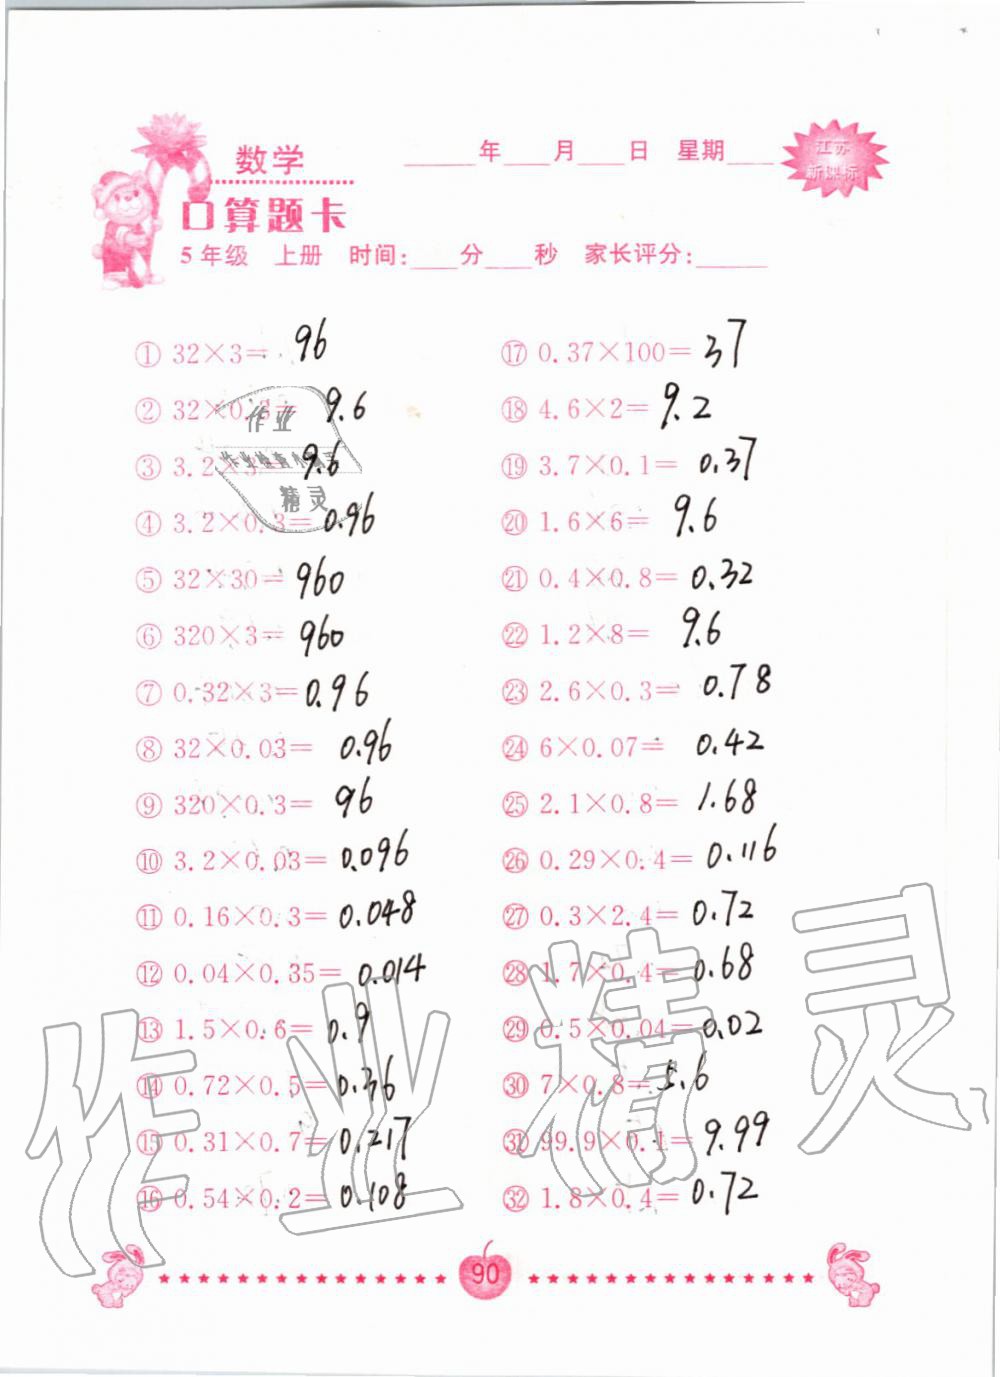 数学
____年____月____日 星期____
江苏
新课标
口算题卡
5年级 上册 时间:____分____秒 家长评分:____
① 32×3= 96
② 32×0.3= 9.6
③ 3.2×3= 9.6
④ 3.2×0.3= 0.96
⑤ 32×30= 960
⑥ 320×3= 960
⑦ 0.32×3= 0.96
⑧ 32×0.03= 0.96
⑨ 320×0.3= 96
⑩ 3.2×0.03= 0.096
⑪ 0.16×0.3= 0.048
⑫ 0.04×0.35= 0.014
⑬ 1.5×0.6= 0.9
⑭ 0.72×0.5= 0.36
⑮ 0.31×0.7= 0.217
⑯ 0.54×0.2= 0.108
⑰ 0.37×100= 37
⑱ 4.6×2= 9.2
⑲ 3.7×0.1= 0.37
⑳ 1.6×6= 9.6
㉑ 0.4×0.8= 0.32
㉒ 1.2×8= 9.6
㉓ 2.6×0.3= 0.78
㉔ 6×0.07= 0.42
㉕ 2.1×0.8= 1.68
㉖ 0.29×0.4= 0.116
㉗ 0.3×2.4= 0.72
㉘ 1.7×0.4= 0.68
㉙ 0.5×0.04= 0.02
㉚ 7×0.8= 5.6
㉛ 99.9×0.1= 9.99
㉜ 1.8×0.4= 0.72
作业
精灵
作业精灵
90